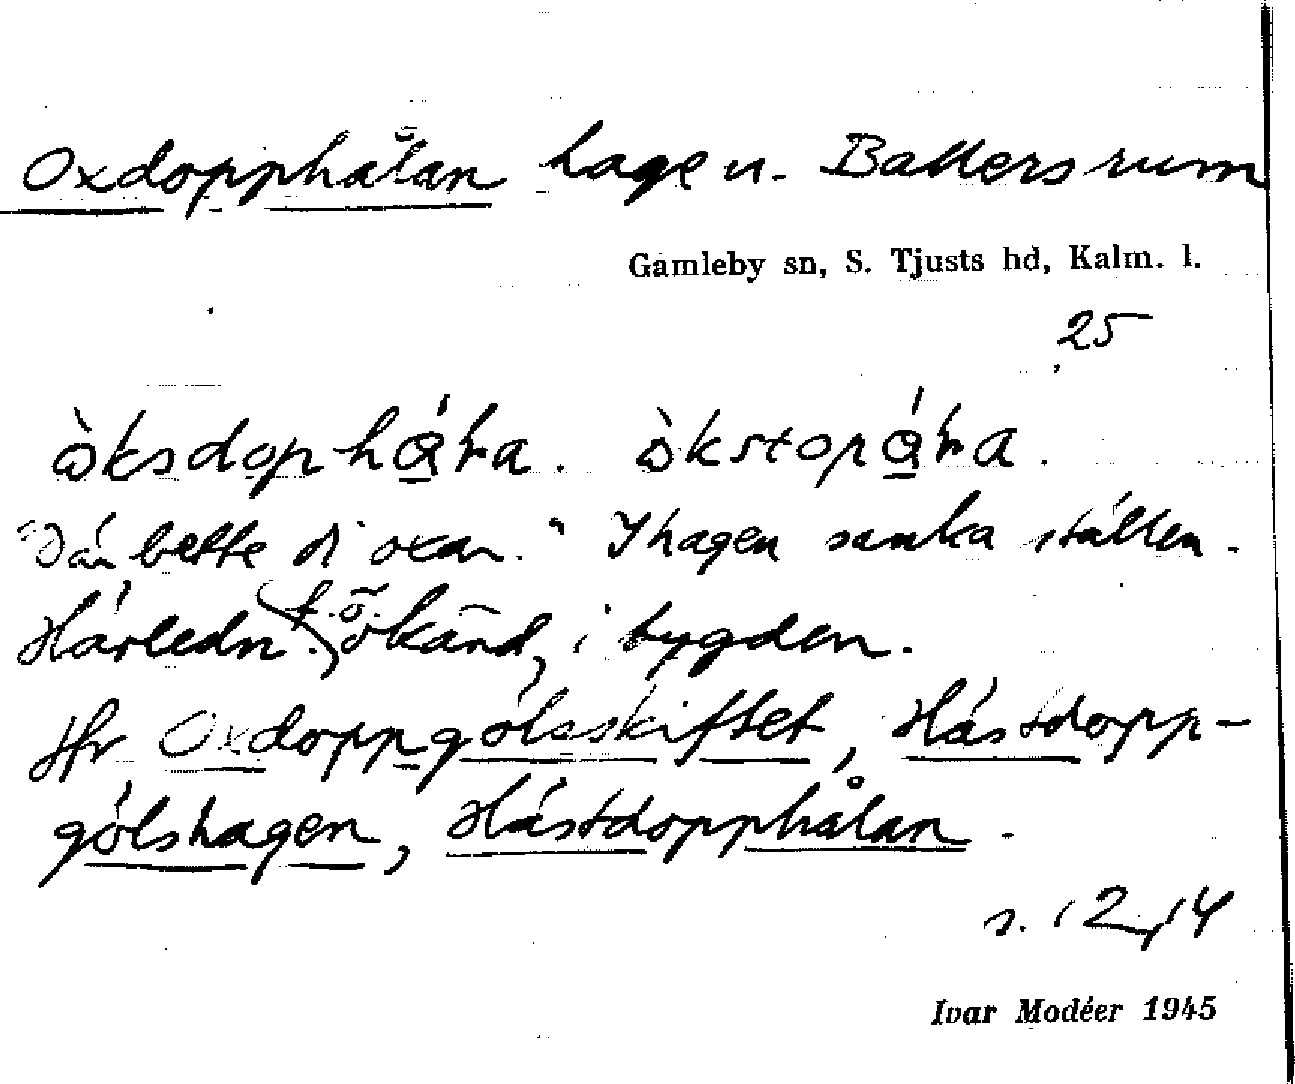 Oxdopphålan hage u. Ballersrum
Gamleby sn, S. Tjusts hd, Kalm. l.
25
"Där bette di oxar." I hagen sanka ställen.
Härledn. f. ö. okänd, i bygden.
Jfr Oxdoppgölsskiftet, Hästdopp-
gölshagen, Hästdopphålan.
s. 12, 14
Ivar Modéer 1945